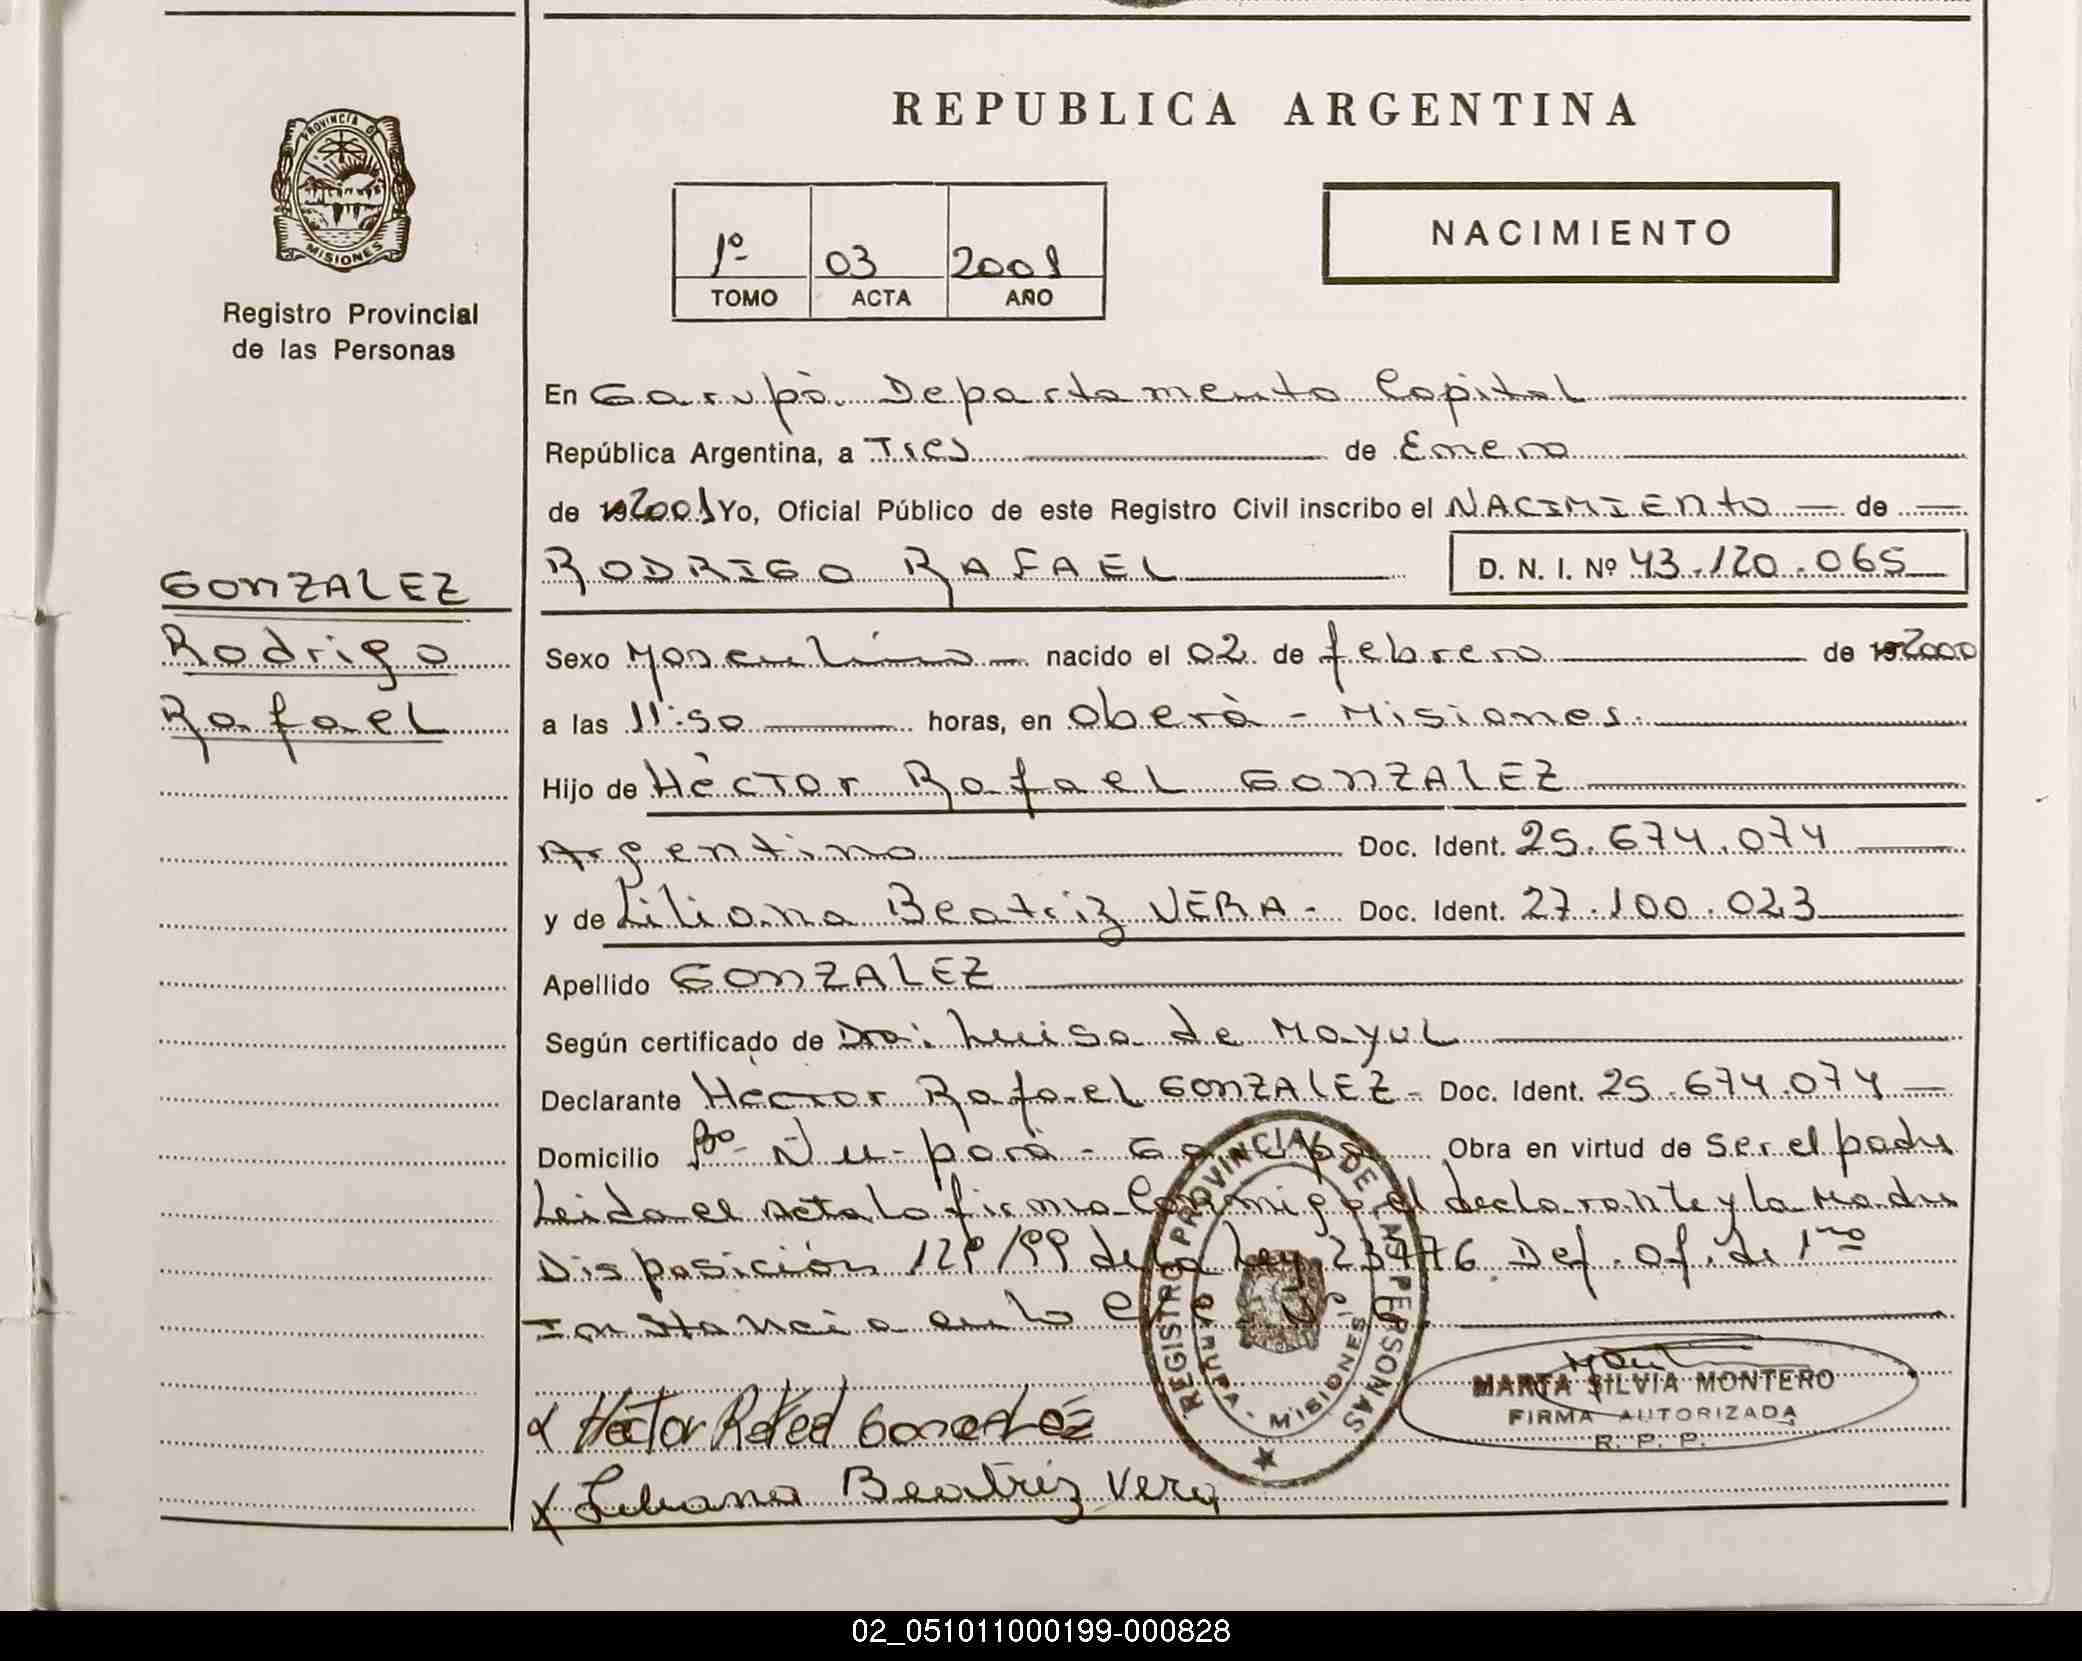 REPUBLICA ARGENTINA
PROVINCIA D
MISIONES
Registro Provincial
de las Personas
1º 03 2001
TOMO ACTA AÑO
NACIMIENTO
En Garupà. Departamento Capital
República Argentina, a Tres de Enero
de 2001 Yo, Oficial Público de este Registro Civil inscribo el NACIMIENTO de
RODRIGO RAFAEL D. N. I. Nº 43.120.065
GONZALEZ
Rodrigo
Rafael
Sexo Masculino nacido el 02 de febrero de 2000
a las 11:50 horas, en Oberà - Misiones.
Hijo de Hèctor Rafael GONZALEZ
Argentino Doc. Ident. 25.674.074
y de Liliana Beatriz VERA - Doc. Ident. 27.100.023
Apellido GONZALEZ
Según certificado de Dra: Luisa de Mayul
Declarante Hèctor Rafael GONZALEZ - Doc. Ident. 25.674.074
Domicilio Bº Ñu-porà - Garupà Obra en virtud de Ser el padre
Leida el Acta la firma Conmigo el declarante y la Madre
Disposición 129/99 de la Ley 23476. Def. of. de 1ra
Instancia en lo
REGISTRO PROVINCIAL DE LAS PERSONAS
GARUPA - MISIONES
MARTA SILVIA MONTERO
FIRMA AUTORIZADA
R. P. P.
x Hector Rafael Gonzalez
x Liliana Beatriz Vera
02_051011000199-000828